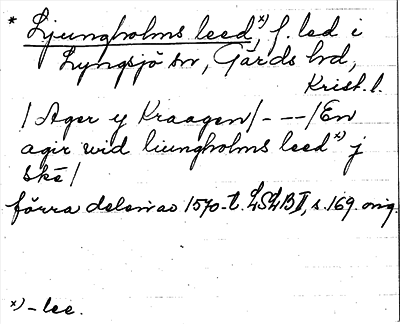 * Ljungholms leed, x) f. led i
Lyngsjö sn, Gärds hd,
Krist. l.
/Ager y Kraagen/ - - -/En
agir wid liungholms leed x) j
Skē/
förra delen av 1570-t. LSLB II, s. 169. orig.
x) - lee.